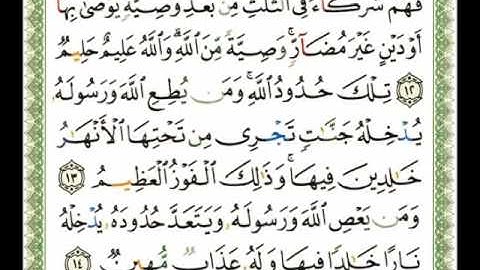 فَهُمْ شُرَكَآءُ فِى ٱلثُّلُثِ مِنۢ بَعْدِ وَصِيَّةٍ يُوصَىٰ بِهَآ
أَوْ دَيْنٍ غَيْرَ مُضَآرٍّ ۚ وَصِيَّةً مِّنَ ٱللَّهِ ۗ وَٱللَّهُ عَلِيمٌ حَلِيمٌ
١٢ تِلْكَ حُدُودُ ٱللَّهِ ۚ وَمَن يُطِعِ ٱللَّهَ وَرَسُولَهُۥ
يُدْخِلْهُ جَنَّٰتٍ تَجْرِى مِن تَحْتِهَا ٱلْأَنْهَٰرُ
خَٰلِدِينَ فِيهَا ۚ وَذَٰلِكَ ٱلْفَوْزُ ٱلْعَظِيمُ ١٣
وَمَن يَعْصِ ٱللَّهَ وَرَسُولَهُۥ وَيَتَعَدَّ حُدُودَهُۥ يُدْخِلْهُ
نَارًا خَٰلِدًا فِيهَا وَلَهُۥ عَذَابٌ مُّهِينٌ ١٤